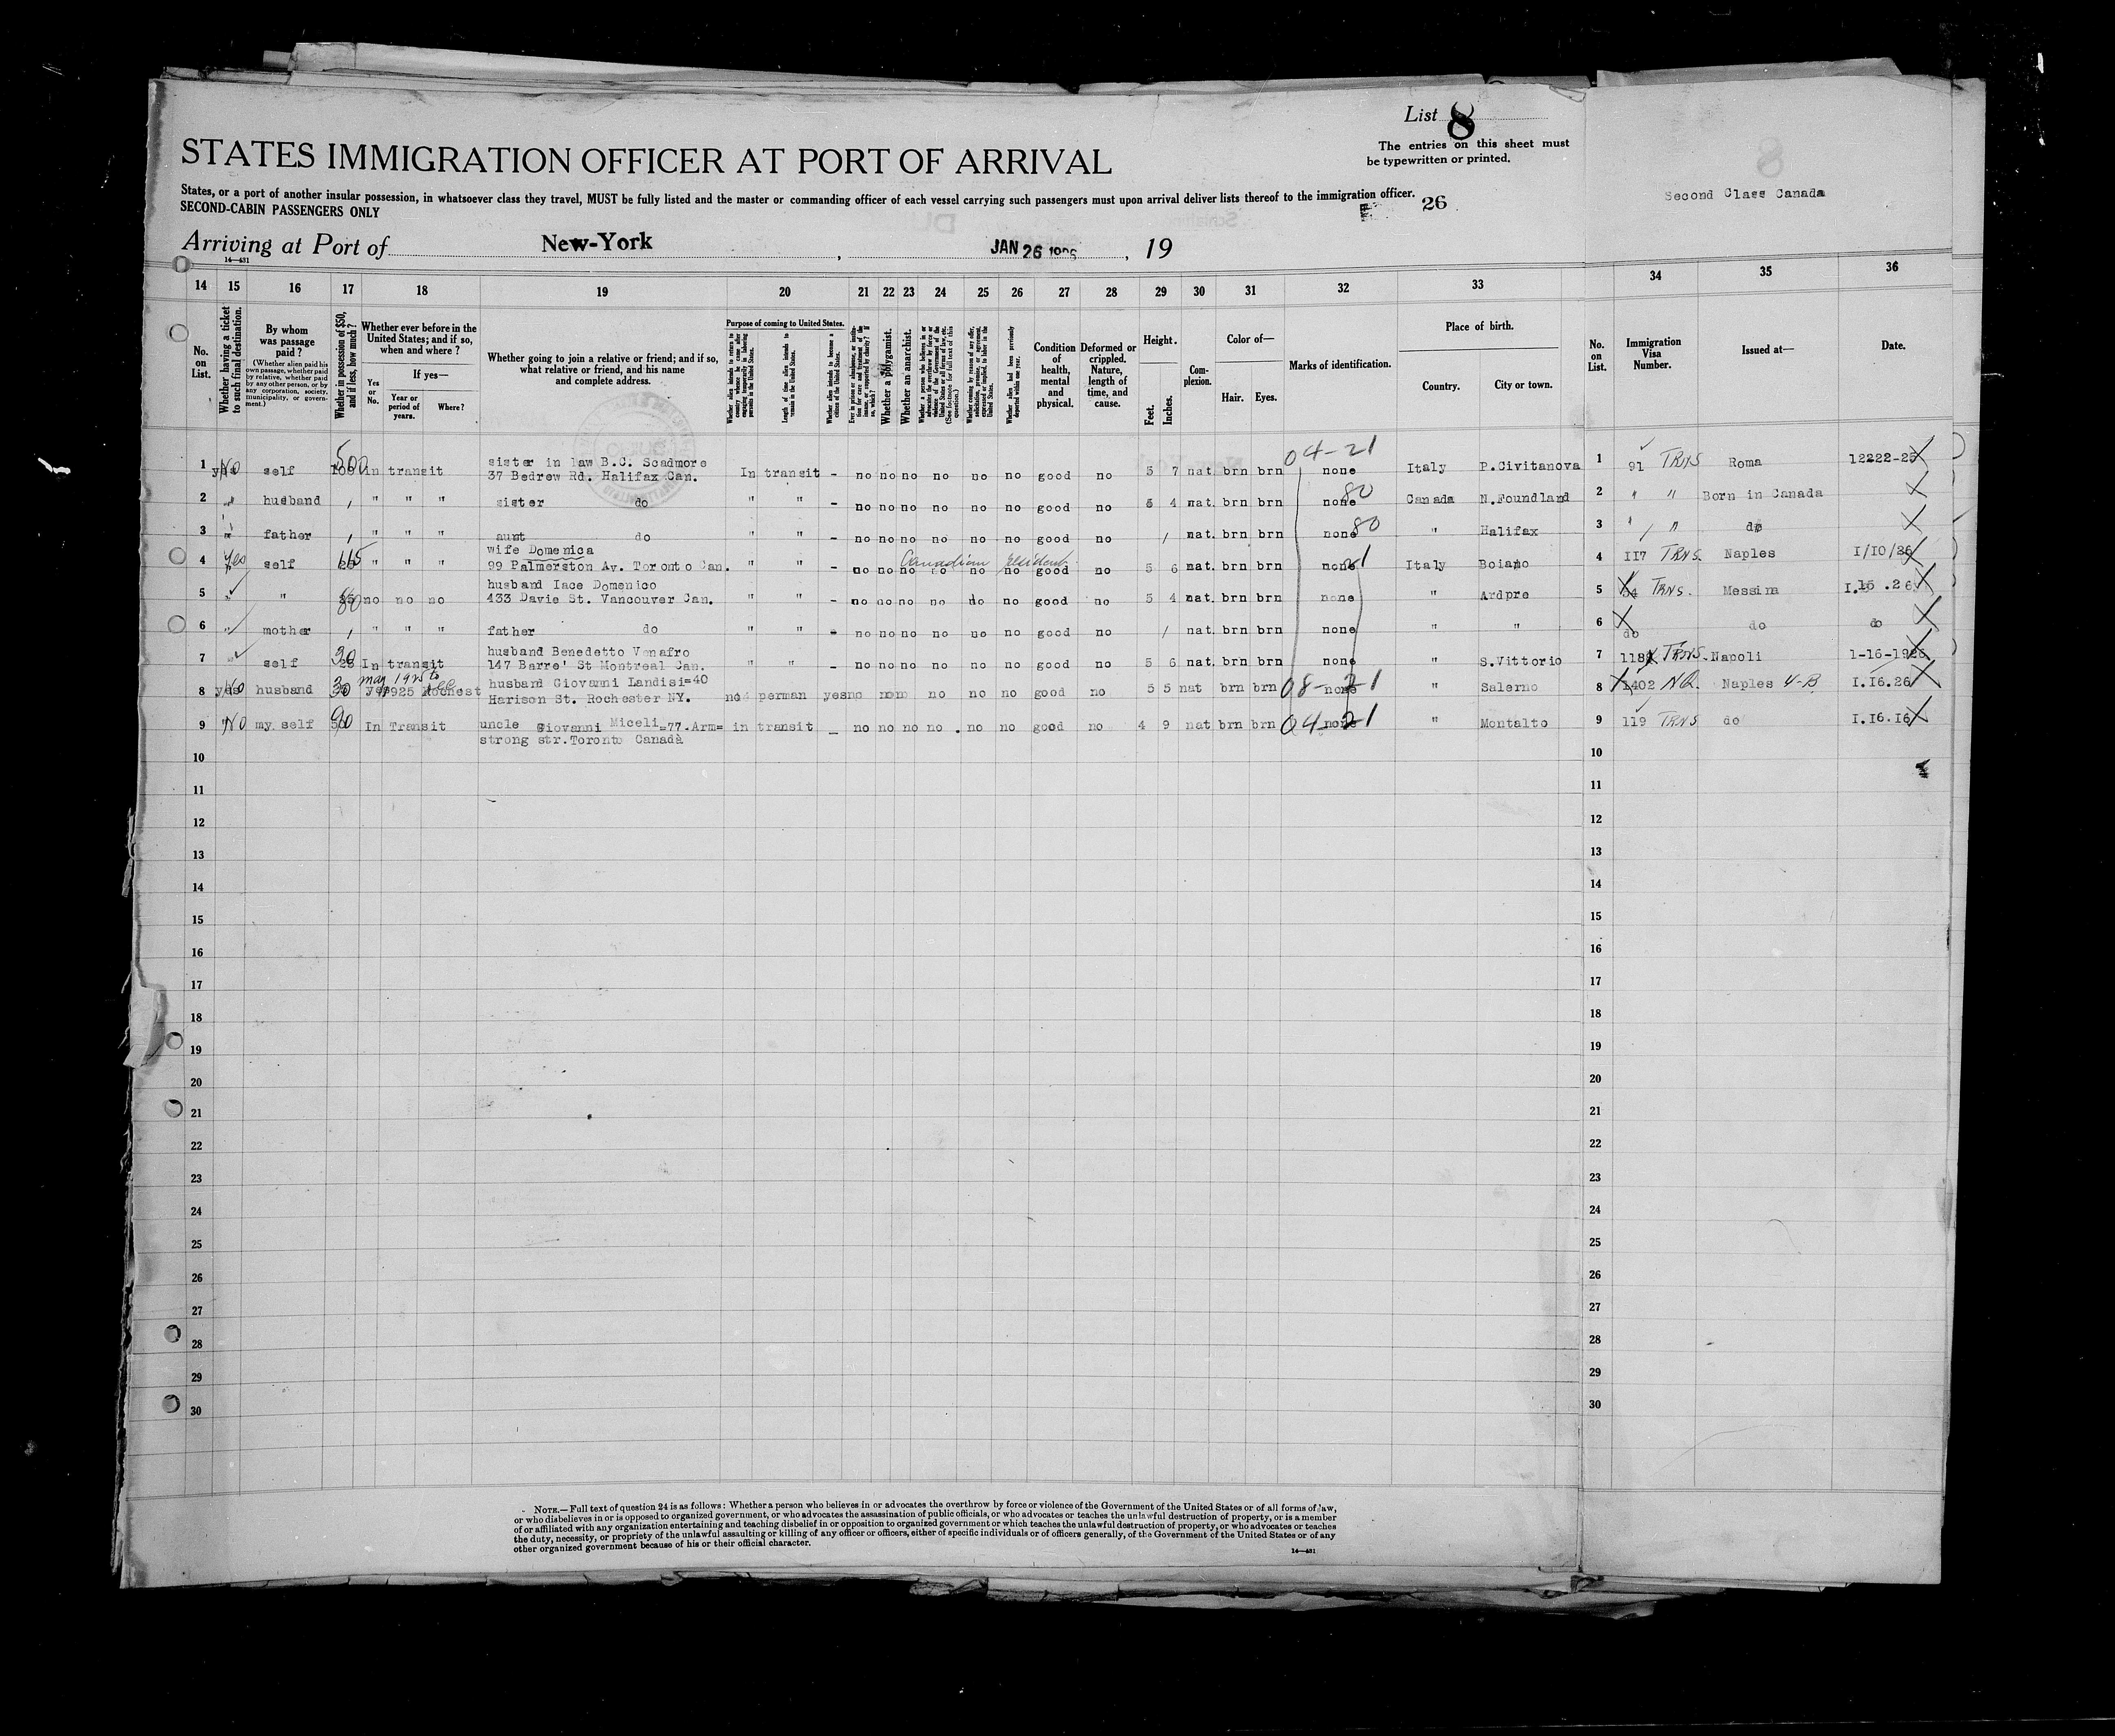 List 8
The entries on this sheet must
be typewritten or printed.
STATES IMMIGRATION OFFICER AT PORT OF ARRIVAL
States, or a port of another insular possession, in whatsoever class they travel, MUST be fully listed and the master or commanding officer of each vessel carrying such passengers must upon arrival deliver lists thereof to the immigration officer.
SECOND-CABIN PASSENGERS ONLY
26
Second Class Canada
Arriving at Port of New-York, JAN 26 1926, 19
14—431
14 15 16 17 18 19 20 21 22 23 24 25 26 27 28 29 30 31 32 33 34 35 36
No. on List.
Whether having a ticket to such final destination.
By whom was passage paid?
(Whether alien paid his own passage, whether paid by relative, whether paid by any other person, or by any corporation, society, municipality, or government.)
Whether in possession of $50, and if less, how much?
Whether ever before in the United States; and if so, when and where?
Yes or No.
If yes—
Year or period of years.
Where?
Whether going to join a relative or friend; and if so, what relative or friend, and his name and complete address.
Purpose of coming to United States.
Length of time alien intends to remain in the United States.
Whether alien intends to become a citizen of the United States.
Whether a polygamist.
Whether an anarchist.
Condition of health, mental and physical.
Deformed or crippled. Nature, length of time, and cause.
Height.
Feet.
Inches.
Complexion.
Color of—
Hair.
Eyes.
Marks of identification.
Place of birth.
Country.
City or town.
No. on List.
Immigration Visa Number.
Issued at—
Date.
04-21
1 No self 500 in transit sister in law B.C. Scadmore In transit - no no no no no no good no 5 7 nat. brn brn none Italy P.Civitanova 1 91 TRNS Roma 12222-25
37 Bedrew Rd. Halifax Can.
2 " husband " " " sister do " " - no no no no no no good no 5 4 nat. brn brn none 80 Canada N.Foundland 2 " " Born in Canada
3 " father " " " aunt do " " - no no no no no no good no / nat. brn brn none 80 " Halifax 3 " " do
wife Domenica
Canadian resident
4 Yes self " " " 99 Palmerston Av. Toronto Can. " " - no no no no no no good no 5 6 nat. brn brn none Italy Boiano 4 117 TRNS. Naples I/10/26
husband Iace Domenico
5 " " 80 no no no 433 Davie St. Vancouver Can. " " - no no no no no no good no 5 4 nat. brn brn none " Ardpre 5 TRNS. Messina I.15.26
6 " mother " " " father do " " - no no no no no no good no / nat. brn brn none " " 6 do do do
husband Benedetto Venafro
7 " self 30 In transit 147 Barre' St Montreal Can. " " - no no no no no no good no 5 6 nat. brn brn none " S.Vittorio 7 TRNS. Napoli 1-16-1926
may 1925 to
8 No husband 30 yes 1925 Rochest husband Giovanni Landisi=40 no perman yes no no no no no no good no 5 5 nat brn brn 08-21 none " Salerno 8 1402 NQ. Naples 4-B I.16.26
Harison St. Rochester NY.
9 No my self 90 In Transit uncle Giovanni Miceli=77.Arm= in transit - no no no no no no good no 4 9 nat brn brn 04-21 none " Montalto 9 119 TRNS do I.16.16
strong str.Toronto Canadà
10 10
11 11
12 12
13 13
14 14
15 15
16 16
17 17
18 18
19 19
20 20
21 21
22 22
23 23
24 24
25 25
26 26
27 27
28 28
29 29
30 30
NOTE.—Full text of question 24 is as follows: Whether a person who believes in or advocates the overthrow by force or violence of the Government of the United States or of all forms of law,
or who disbelieves in or is opposed to organized government, or who advocates the assassination of public officials, or who advocates or teaches the unlawful destruction of property, or is a member
of or affiliated with any organization entertaining and teaching disbelief in or opposition to organized government or which teaches the unlawful destruction of property, or who advocates or teaches
the duty, necessity, or propriety of the unlawful assaulting or killing of any officer or officers, either of specific individuals or of officers generally, of the Government of the United States or of any
other organized government because of his or their official character.
14—431